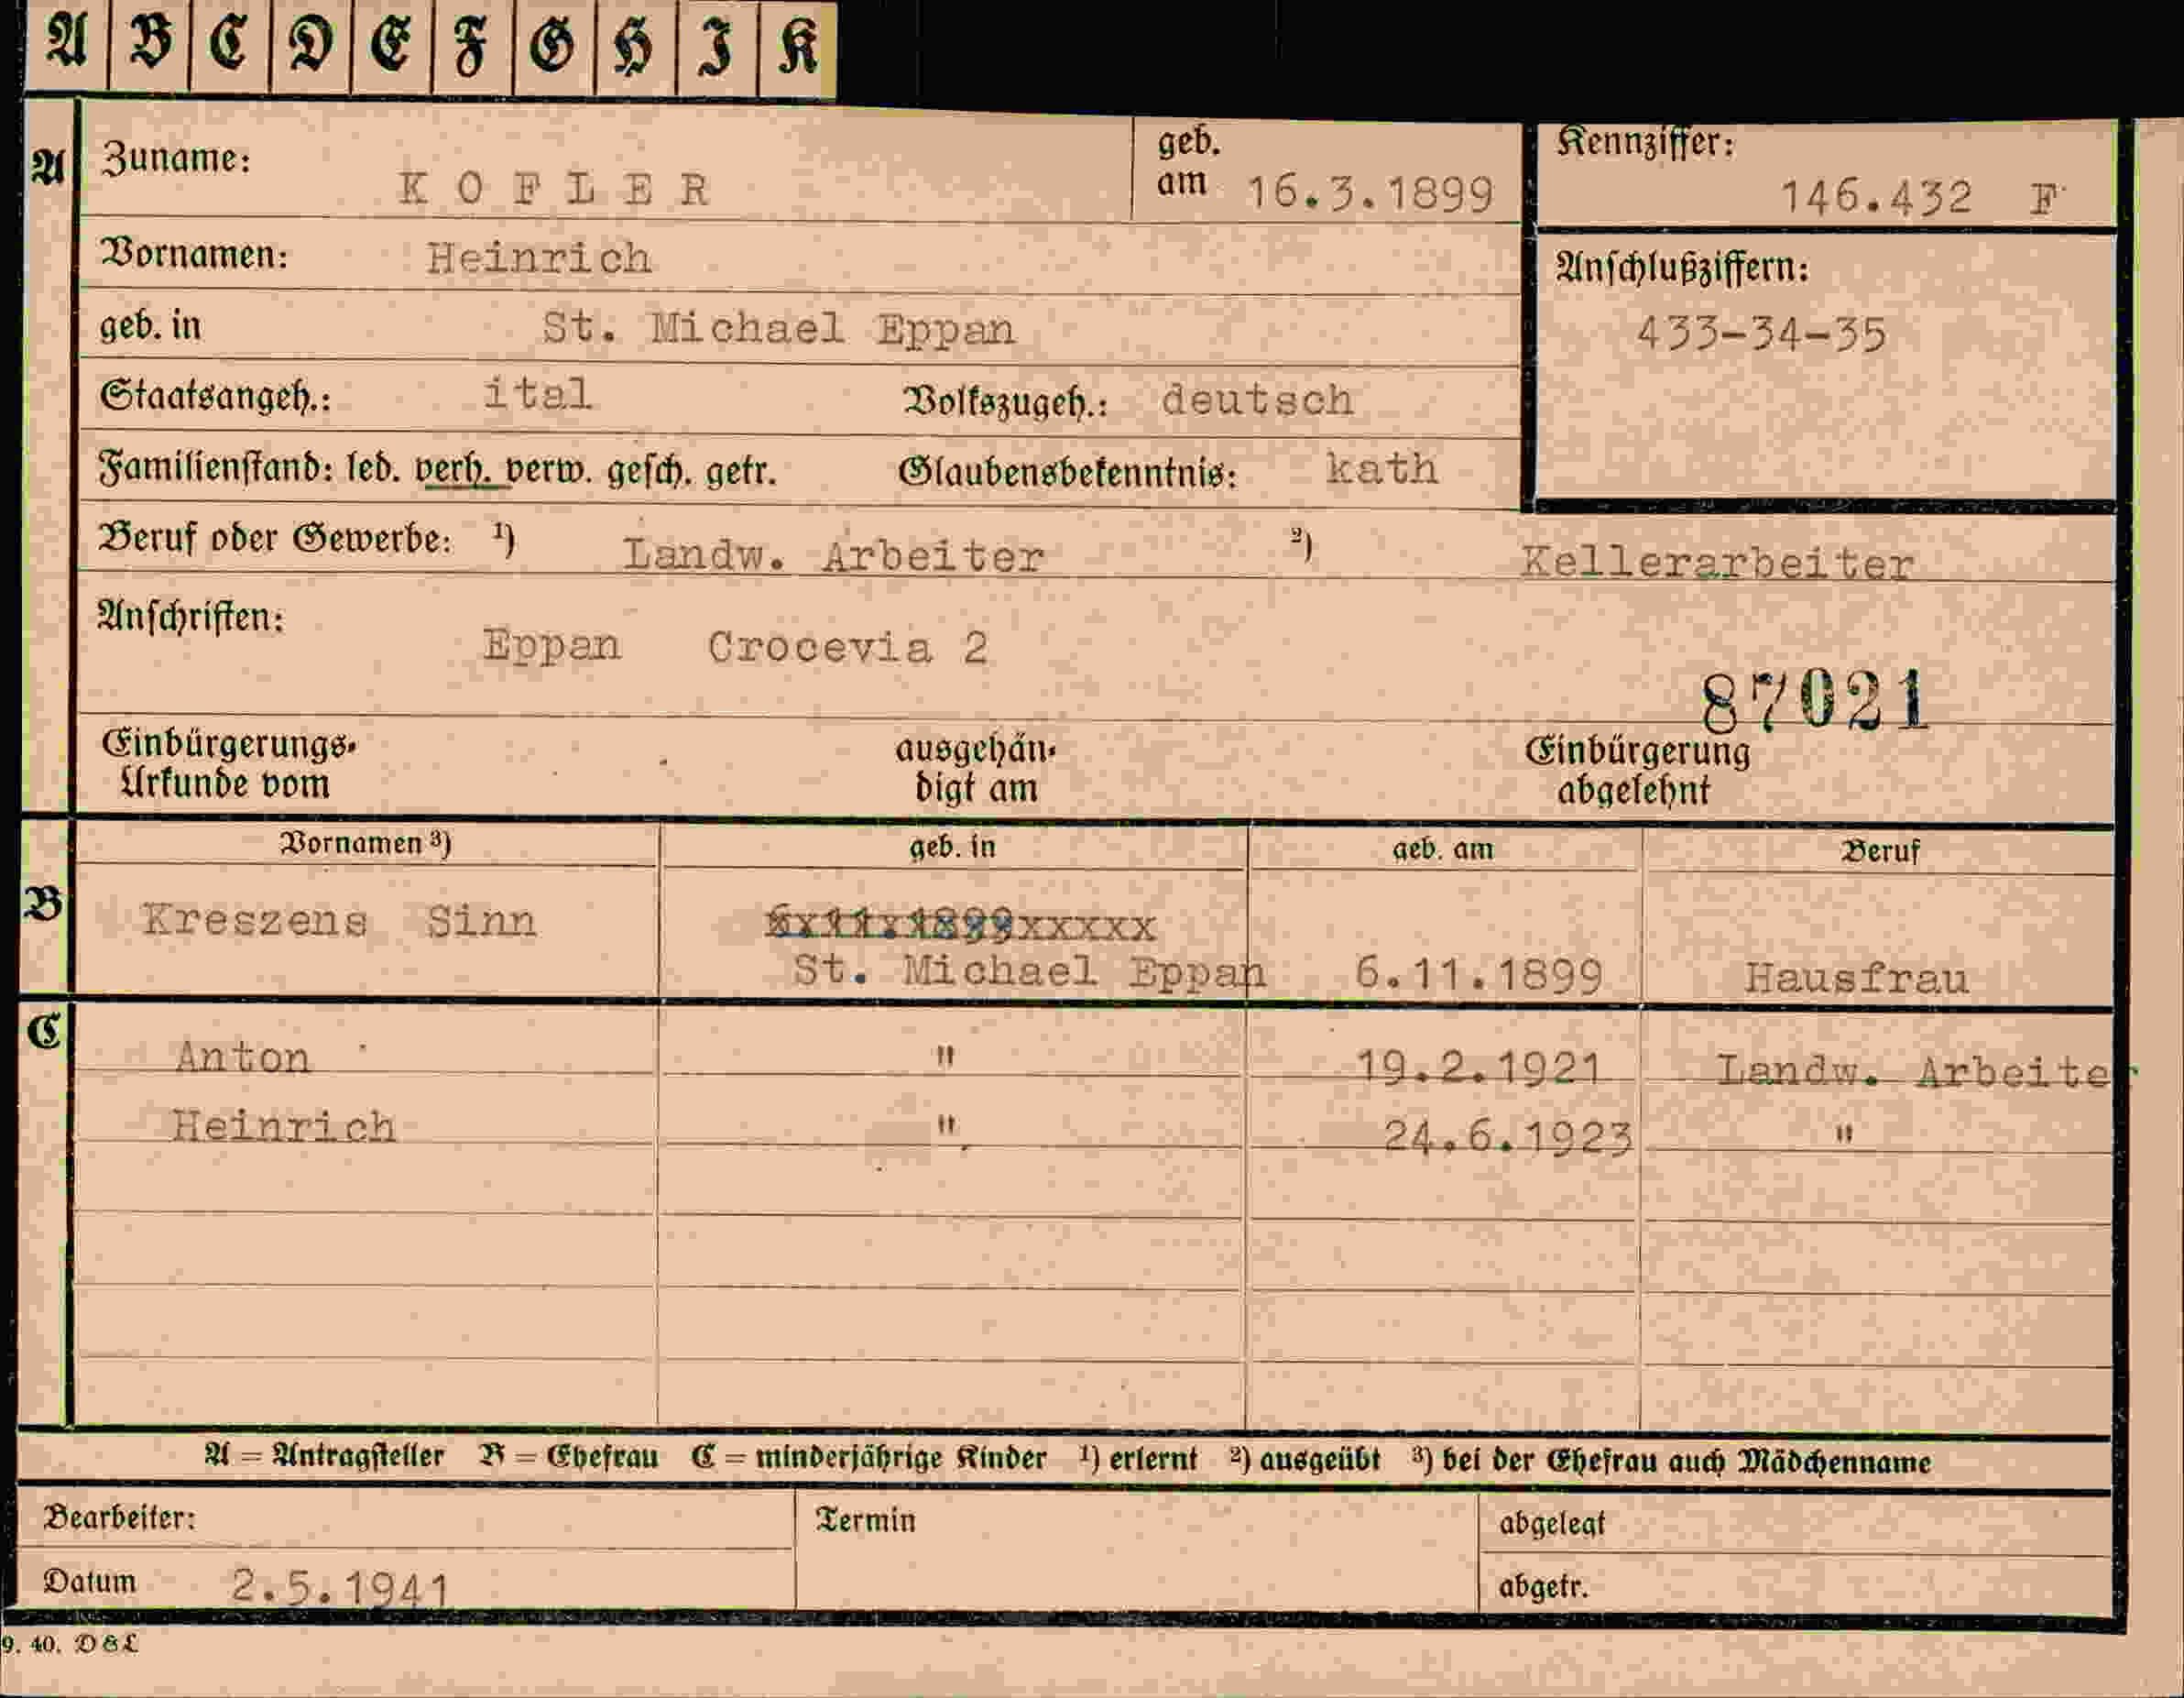 A B C D E F G H I K
A Zuname: KOFLER geb. am 16.3.1899 Kennziffer: 146.432 F
Vornamen: Heinrich Anschlußziffern:
geb. in St. Michael Eppan 433-34-35
Staatsangeh.: ital Volkszugeh.: deutsch
Familienstand: led. verh. verw. gesch. getr. Glaubensbekenntnis: kath
Beruf oder Gewerbe: 1) Landw. Arbeiter 2) Kellerarbeiter
Anschriften: Eppan Crocevia 2
87021
Einbürgerungs- ausgehän- Einbürgerung
Urkunde vom digt am abgelehnt
Vornamen 3) geb. in geb. am Beruf
B Kreszens Sinn 6x11x1899xxxxx
St. Michael Eppan 6.11.1899 Hausfrau
C
Anton " 19.2.1921 Landw. Arbeiter
Heinrich " 24.6.1923 "
A = Antragsteller B = Ehefrau C = minderjährige Kinder 1) erlernt 2) ausgeübt 3) bei der Ehefrau auch Mädchenname
Bearbeiter: Termin abgelegt
Datum 2.5.1941 abgetr.
9. 40. D & L